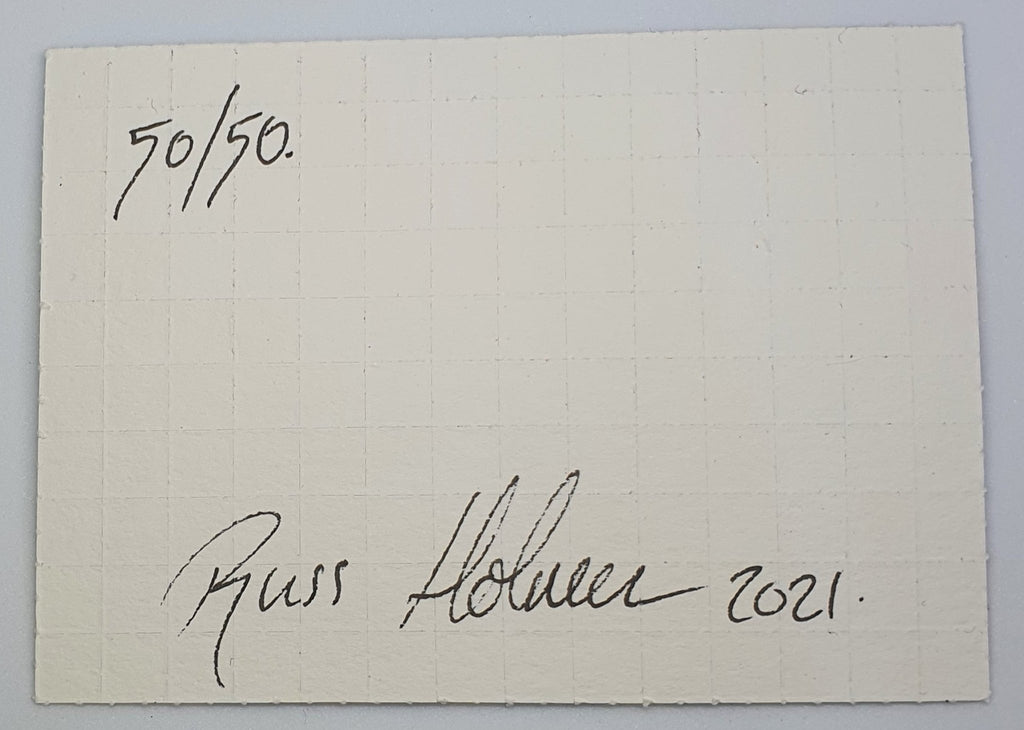 50/50.
Russ 2021.